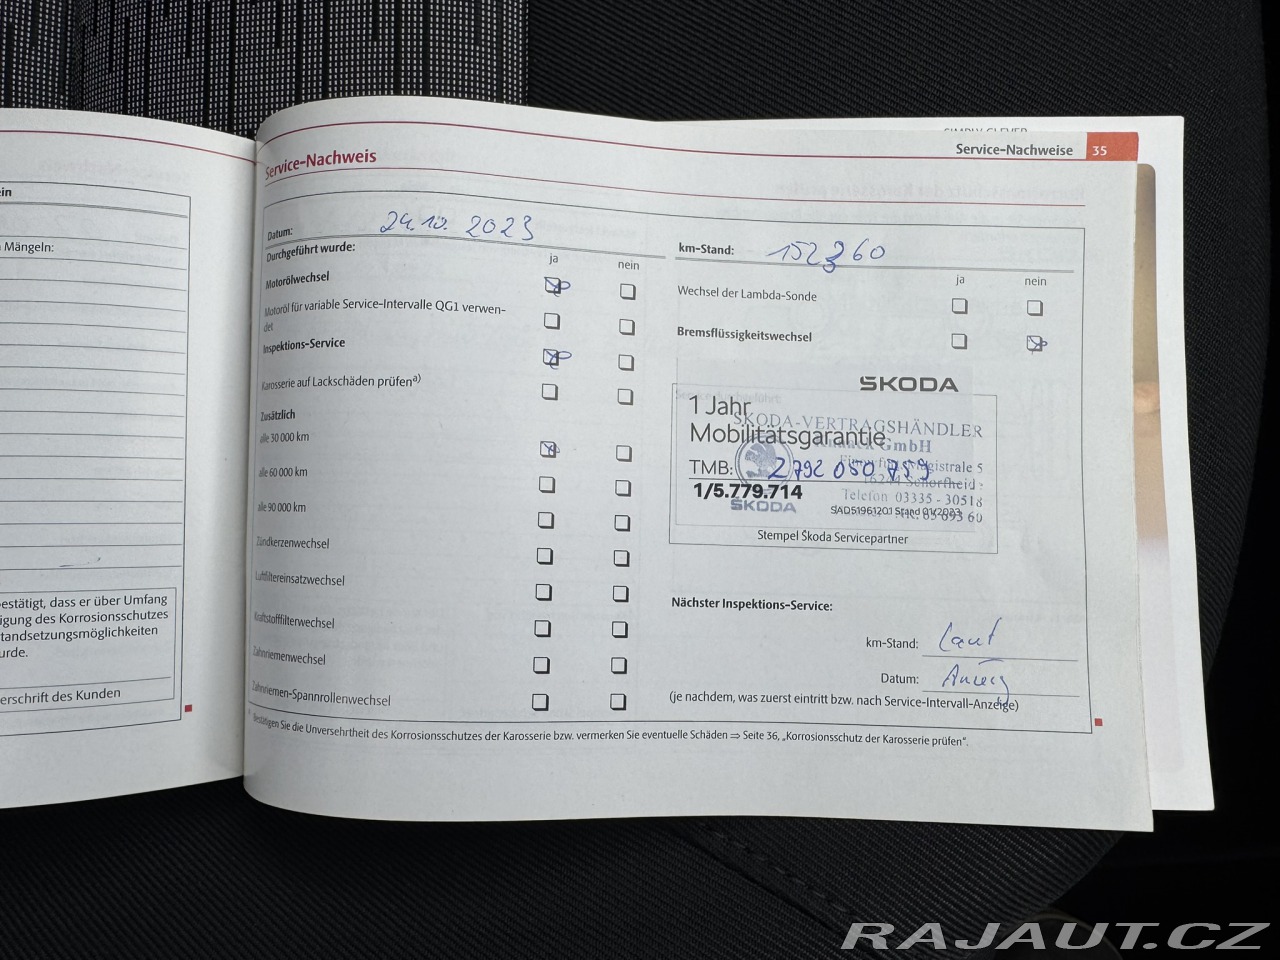 SIMPLY CLEVER
Service-Nachweise 35
ein
Mängeln:
estätigt, dass er über Umfang
igung des Korrosionsschutzes
tandsetzungsmöglichkeiten
urde.
erschrift des Kunden
Service-Nachweis
Datum: 24.10. 2023
Durchgeführt wurde:
ja nein
Motorölwechsel
Motoröl für variable Service-Intervalle QG1 verwen-
det
Inspektions-Service
Karosserie auf Lackschäden prüfena)
Zusätzlich
alle 30 000 km
alle 60 000 km
alle 90 000 km
Zündkerzenwechsel
Luftfiltereinsatzwechsel
Kraftstofffilterwechsel
Zahnriemenwechsel
Zahnriemen-Spannrollenwechsel
km-Stand: 152360
ja nein
Wechsel der Lambda-Sonde
Bremsflüssigkeitswechsel
ŠKODA
1 Jahr
Mobilitätsgarantie
TMB: 2792 050 759
1/5.779.714
SAD51961201 Stand 01/2023
ŠKODA-VERTRAGSHÄNDLER
GmbH
Telefon 03335 - 30518
ŠKODA
Stempel Škoda Servicepartner
Nächster Inspektions-Service:
km-Stand: Laut
Datum: Anzeig
(je nachdem, was zuerst eintritt bzw. nach Service-Intervall-Anzeige)
Bestätigen Sie die Unversehrtheit des Korrosionsschutzes der Karosserie bzw. vermerken Sie eventuelle Schäden ⇒ Seite 36, „Korrosionsschutz der Karosserie prüfen“.
RAJAUT.CZ